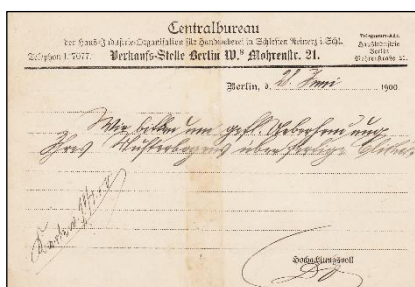 Centralbureau
der Haus-Industrie-Organisation für Handweberei in Schlesien Reinerz i. Schl.
Telephon I. 7077. Verkaufs-Stelle Berlin W.8 Mohrenstr. 21.
Telegramm-Adr.
Hausindustrie
Berlin
Mohrenstraße 21.
Berlin, d. 21. Juni 1900
Wir bitten um gefl. Uebersendung
Ihres Musterbogens über
Hochachtungsvoll